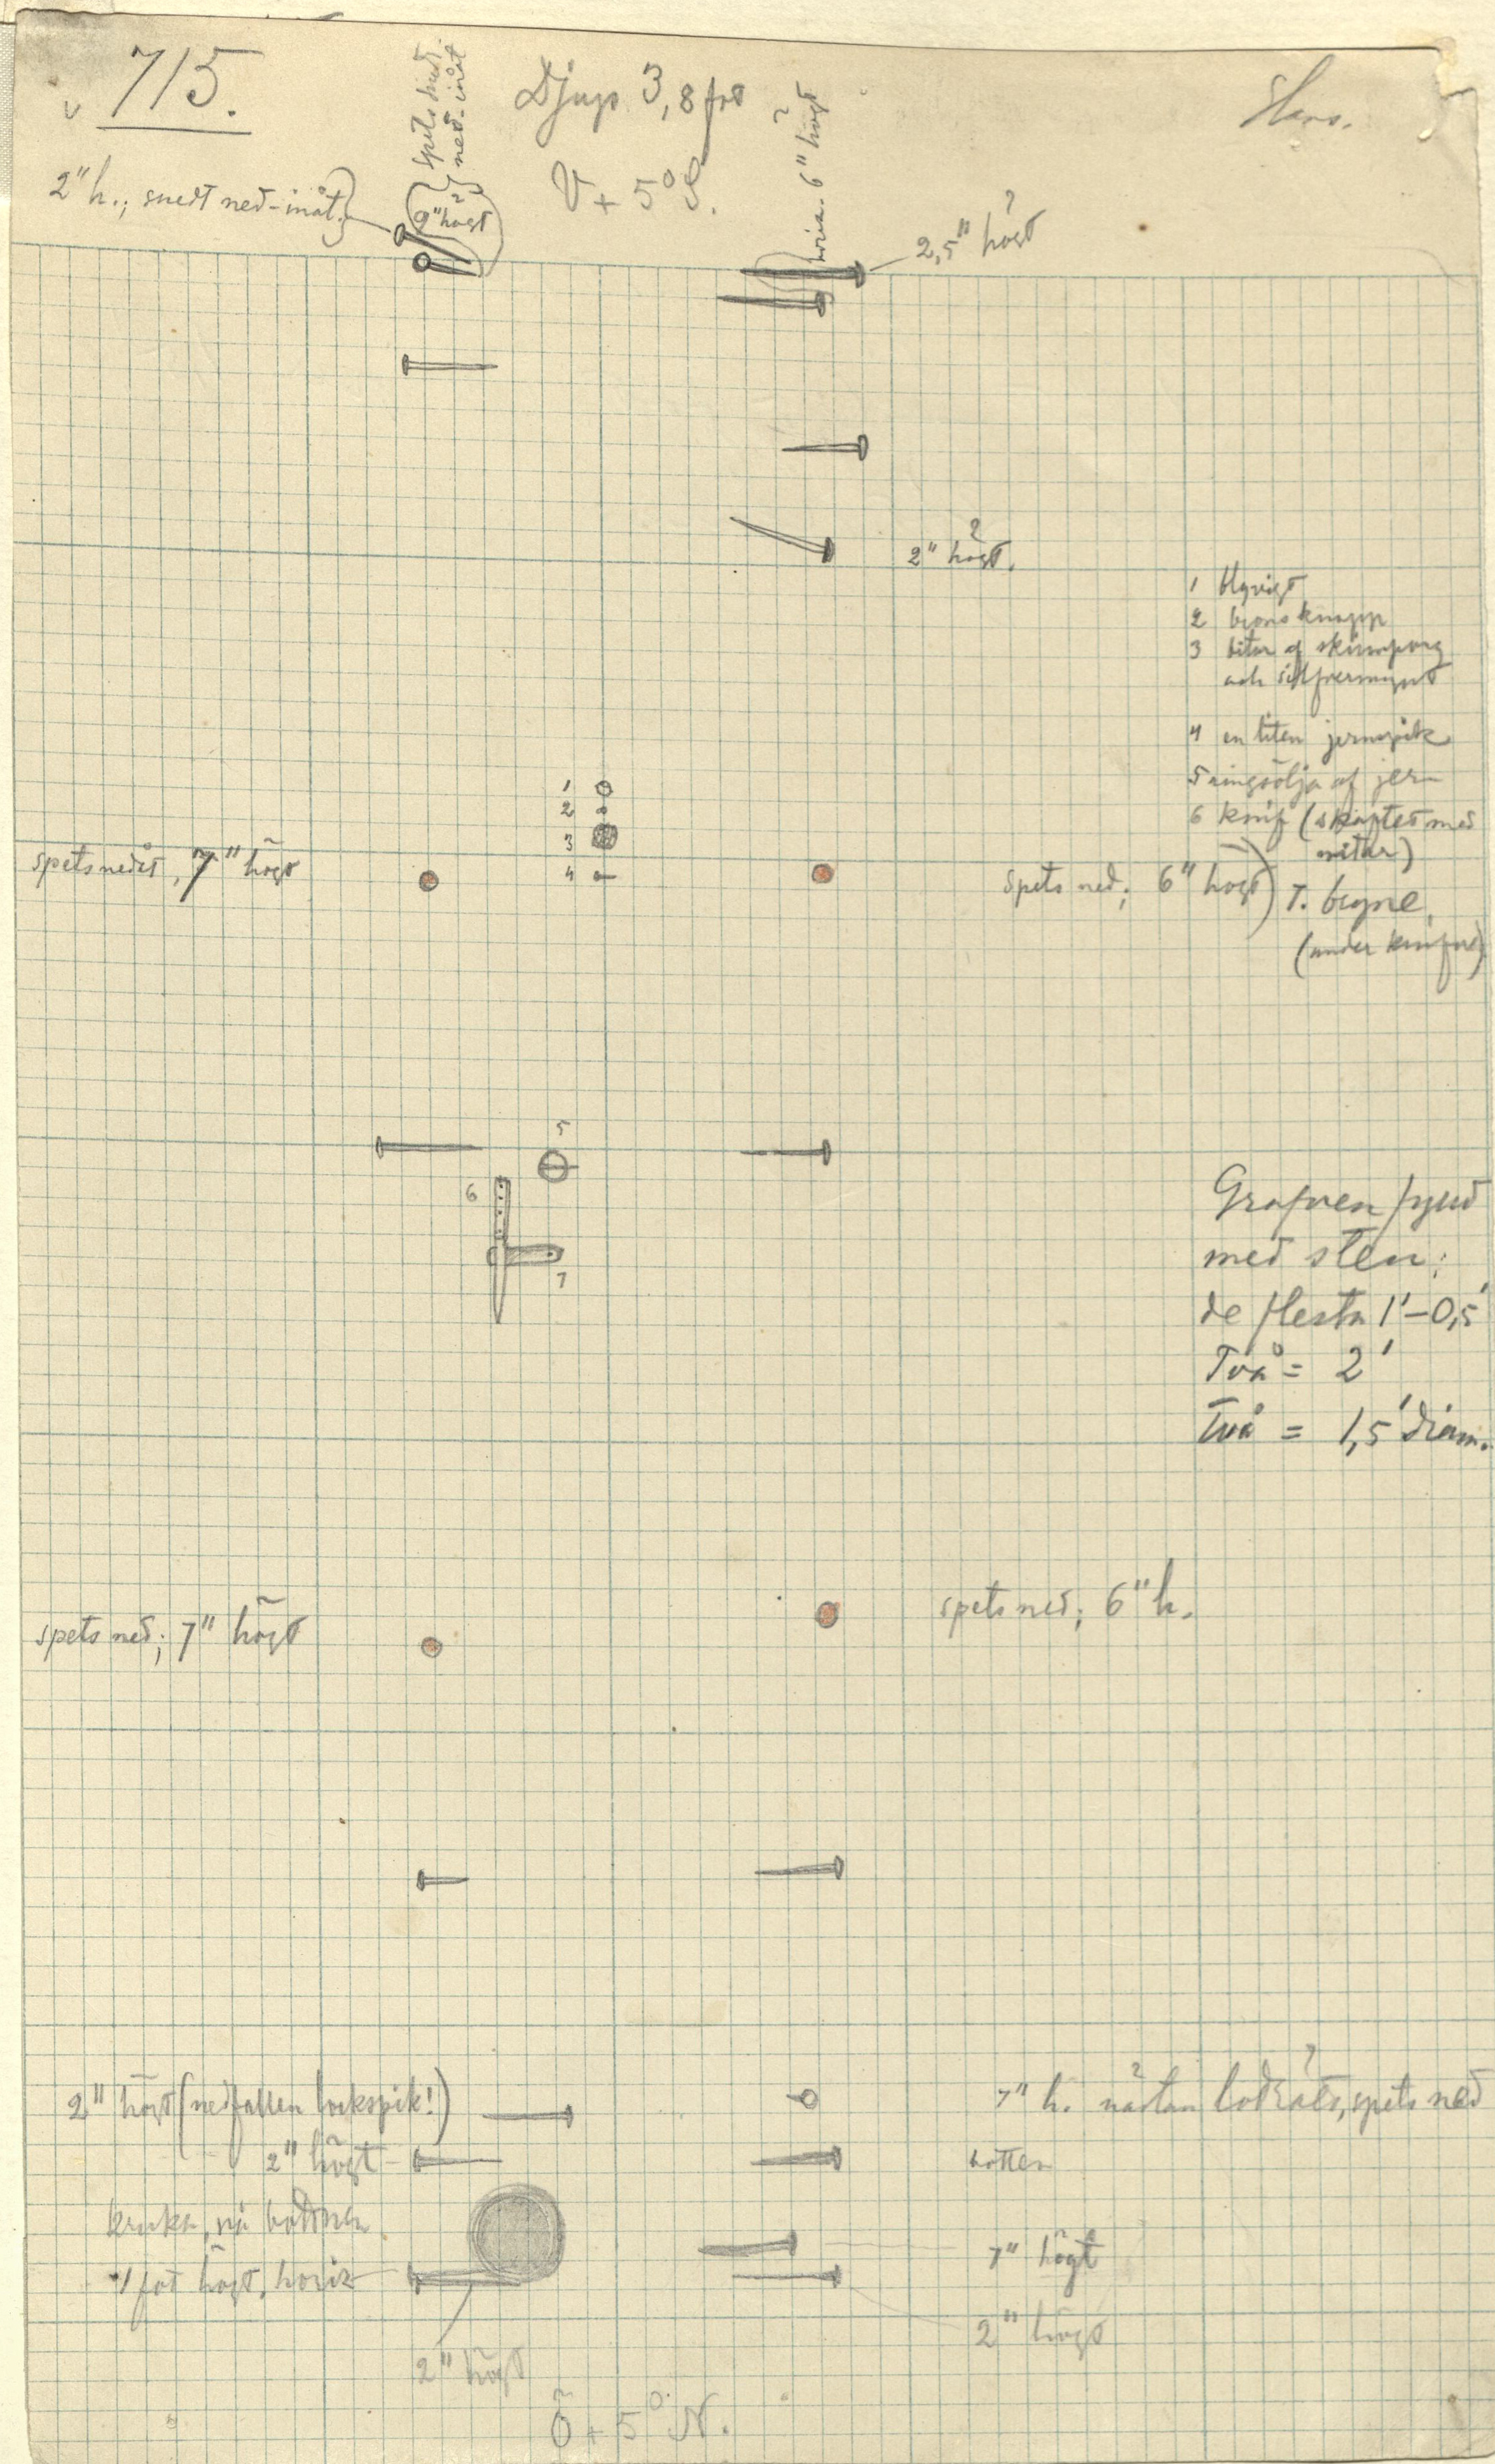 715.
Djup 3,8 fot
V + 5° S.
Hans.
spets snedt
ned-inåt
9" högt
2" h., snedt ned-inåt
horiz. 6" högt
2,5" högt
2" högt.
1 blyvigt
2 bronsknapp
3 bitar af skinnpung
och silfvermynt
4 en liten jernspik
5 ringsölja af jern
6 knif (skaftet med
nitar)
7. bryne
(under knifven)
1
2
3
4
spets nedåt, 7" högt
spets ned; 6" högt
5
6
7
Grafven fyld
med sten;
de flesta 1'–0,5'
Två = 2'
Två = 1,5' diam.
spets ned; 7" högt
spets ned; 6" h.
2" högt (nedfallen lockspik!)
7" h. nästan lodrätt, spets ned
2" högt
botten
kruka, på bottnen
1 fot högt, horiz
7" högt
2" högt
2" högt
Ö + 5° N.